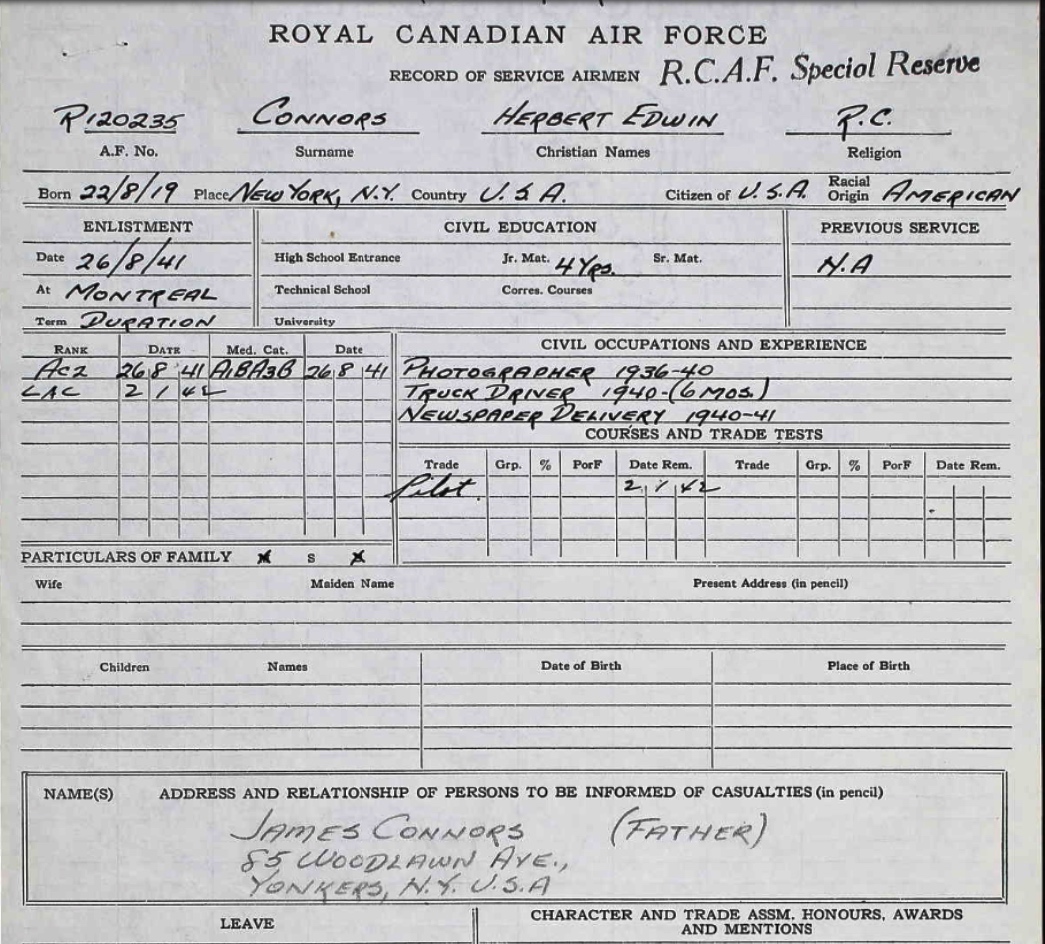 ROYAL CANADIAN AIR FORCE
RECORD OF SERVICE AIRMEN R.C.A.F. Special Reserve
R120235 CONNORS HERBERT EDWIN R.C.
A.F. No. Surname Christian Names Religion
Born 22/8/19 Place NEW YORK, N.Y. Country U.S.A. Citizen of U.S.A. Racial Origin AMERICAN
ENLISTMENT CIVIL EDUCATION PREVIOUS SERVICE
Date 26/8/41 High School Entrance Jr. Mat. 4 YRS. Sr. Mat. N.A
At MONTREAL Technical School Corres. Courses
Term DURATION University
RANK DATE Med. Cat. Date CIVIL OCCUPATIONS AND EXPERIENCE
AC2 26 8 41 A1BA3B 26 8 41 PHOTOGRAPHER 1936-40
LAC 2 1 42 TRUCK DRIVER 1940-(6 MOS.)
NEWSPAPER DELIVERY 1940-41
COURSES AND TRADE TESTS
Trade Grp. % PorF Date Rem. Trade Grp. % PorF Date Rem.
Pilot. 2 1 42
PARTICULARS OF FAMILY S
Wife Maiden Name Present Address (in pencil)
Children Names Date of Birth Place of Birth
NAME(S) ADDRESS AND RELATIONSHIP OF PERSONS TO BE INFORMED OF CASUALTIES (in pencil)
JAMES CONNORS (FATHER)
85 WOODLAWN AVE.,
YONKERS, N.Y. U.S.A
LEAVE CHARACTER AND TRADE ASSM. HONOURS, AWARDS
AND MENTIONS